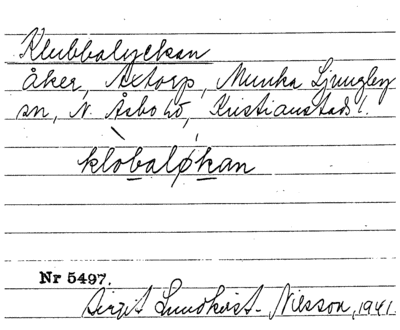 Klubbalyckan
åker, Axtorp, Munka Ljungby
sn, N. Åsbo hd, Kristianstads l.
klòbaløkan
Nr 5497.
Birgit Lundkvist-Nilsson, 1941.